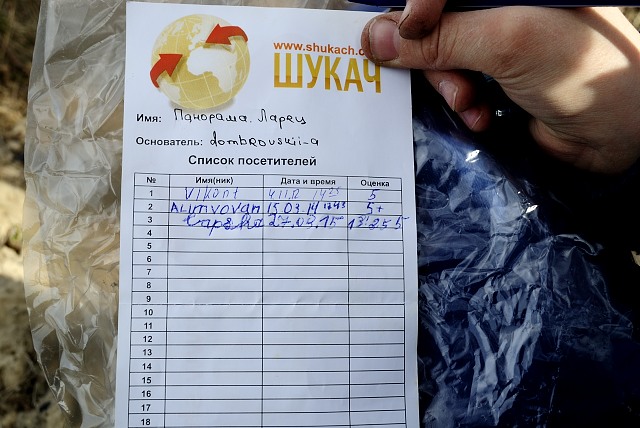 www.shukach.c
ШУКАЧ
Имя: Панорама. Ларец
Основатель: dombrovskii-a
Список посетителей
№ Имя(ник) Дата и время Оценка
1 Vikont 5
2 Alimvovan 15.03.14 5+
3 27.09.15 13:25 5
4
5
6
7
8
9
10
11
12
13
14
15
16
17
18